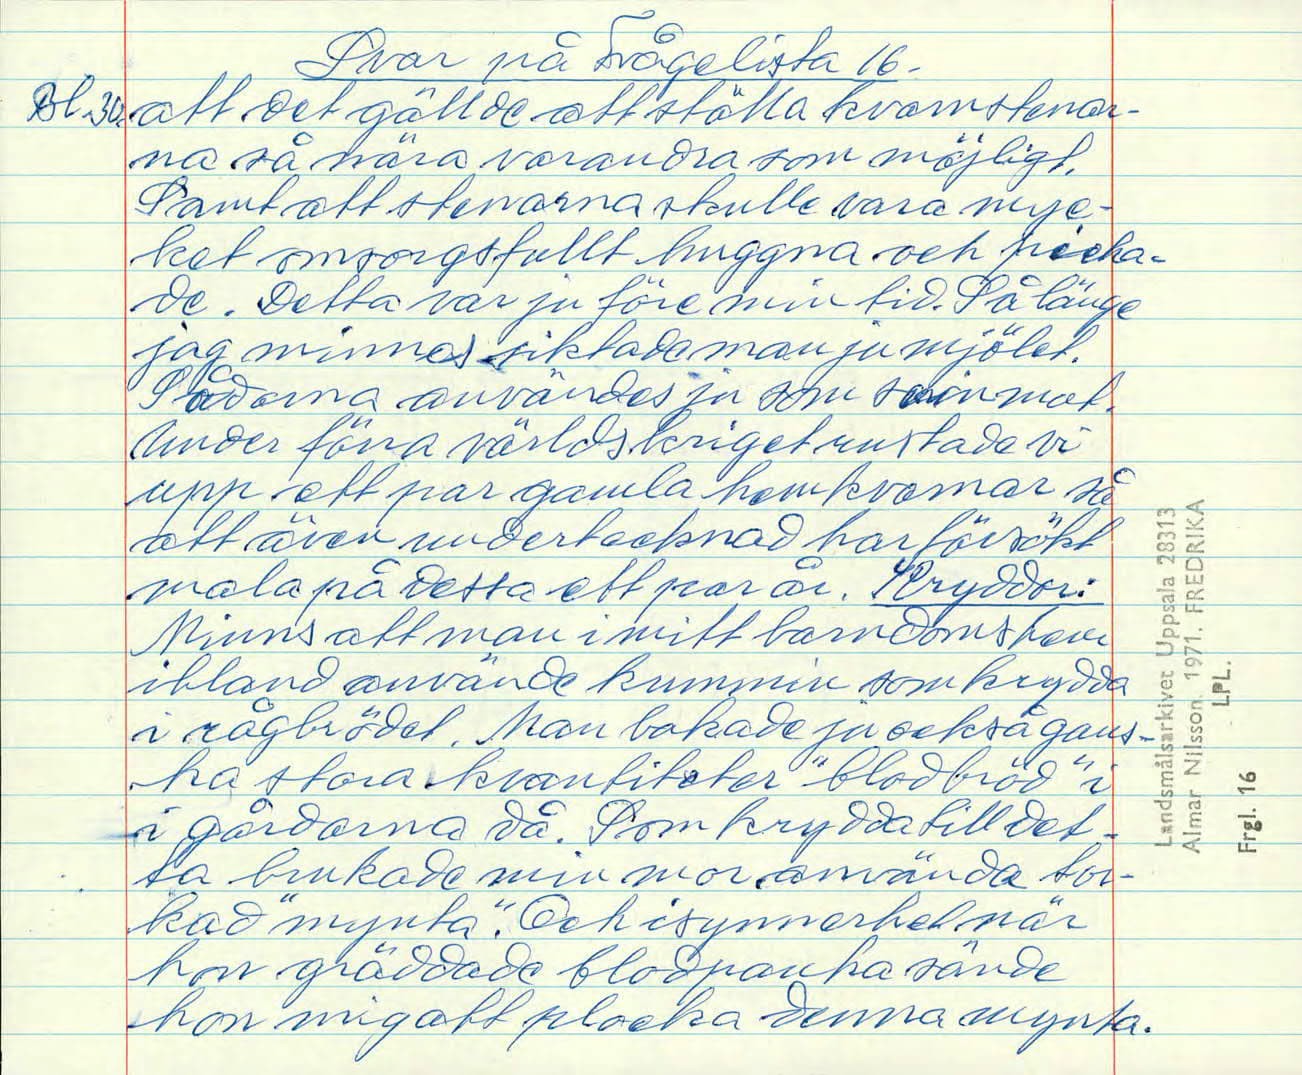 Svar på Frågelista 16.
Bl. 30. att det gällde att ställa kvarnstenar-
na så nära varandra som möjligt.
Samt att stenarna skulle vara myc-
ket omsorgsfullt huggna och hicka-
de. Detta var ju före min tid. Så länge
jag minnes siktade man ju mjölet.
Sådorna användes ju som svinmat.
Under förra världskriget rustade vi
upp ett par gamla hemkvarnar så
att även undertecknad har försökt
mala på dessa ett par år. Kryddor:
Minns att man i mitt barndomshem
ibland använde kummin som krydda
i rågbrödet. Man bakade ju också gans-
ka stora kvantiteter "blodbröd" i
i gårdarna då. Som krydda till det-
ta brukade min mor använda tor-
kad "mynta". Och isynnerhet när
hon gräddade blodpanka sände
hon mig att plocka denna mynta.
Landsmålsarkivet Uppsala 28313
Almar Nilsson. 1971. FREDRIKA
LPL.
Frgl. 16